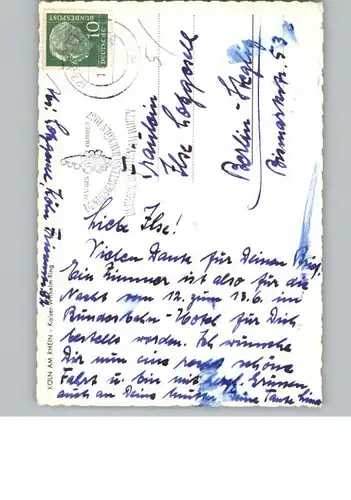 Fräulein
Ilse Loggene
Berlin-Steglitz
Bismarckstr. 53
Liebe Ilse!
Vielen Dank für Deinen Brief.
Ein Zimmer ist also für die
Nacht vom 12. zum 13.6. im
Bundesbahn-Hotel für Dich
bestellt worden. Ich wünsche
Dir nun eine recht schöne
Fahrt u. bin mit herzl. Grüssen,
auch an Deine Mutter Deine Tante
KÖLN AM RHEIN - Kaiser-Wilhelm-Ring
10
DEUTSCHE
BUNDESPOST